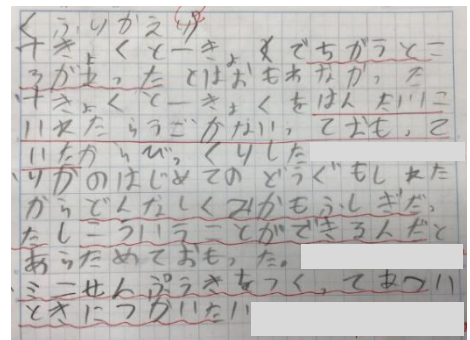 くふりかえり〉
十きょくと一きょくでちがうとこ
ろがあったとはおもわなかった
十きょくと一きょくをはんたいに
いれたらうごかない、ておも、て
いたからび、くりした
りかのはじめてのどうぐもしれた
からどんなしくみかもふしぎだっ
たしこういうことができるんだと
あらためておもった。
ミニせんぷうきをつく、てあつい
ときにつかいたい